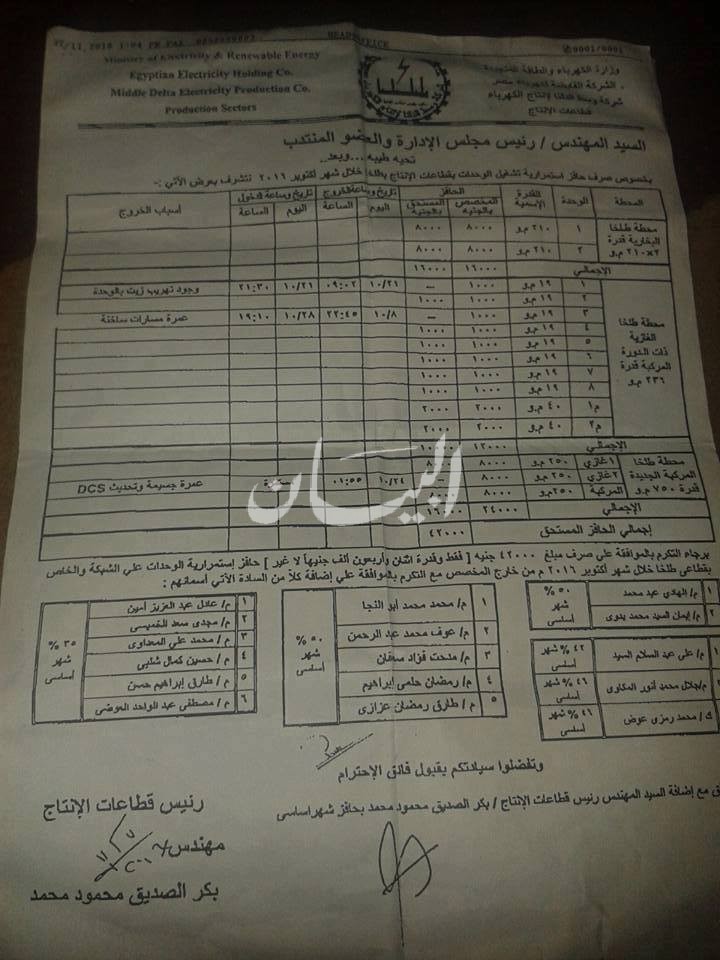 27/11/2016 1:04 PM FAX
HEADOFFICE
0001/0001
Ministry of Electricity & Renewable Energy
Egyptian Electricity Holding Co.
Middle Delta Electricity Production Co.
Production Sectors
وزارة الكهرباء والطاقة المتجددة
الشركة القابضة لكهرباء مصر
شركة وسط الدلتا لإنتاج الكهرباء
قطاعات الإنتاج
السيد المهندس / رئيس مجلس الإدارة والعضو المنتدب
تحيه طيبه ...وبعد..
بخصوص صرف حافز استمرارية تشغيل الوحدات بقطاعات الإنتاج بطلخا خلال شهر أكتوبر ٢٠١٦ نتشرف بعرض الآتي :-
المحطة الوحدة القدرة الاسمية الحافز تاريخ وساعة الخروج تاريخ وساعة الدخول أسباب الخروج
المخصص بالجنيه المستحق بالجنيه اليوم الساعة اليوم الساعة
محطة طلخا البخارية قدرة ٢×٢١٠ م.و
١ ٢١٠ م.و ٨٠٠٠ ٨٠٠٠
٢ ٢١٠ م.و ٨٠٠٠ ٨٠٠٠
الإجمالي ١٦٠٠٠ ١٦٠٠٠
محطة طلخا الغازية ذات الدورة المركبة قدرة ٢٣٦ م.و
١ ١٩ م.و ١٠٠٠ – ١٠/٢١ ٠٩:٠٢ ١٠/٢١ ٢١:٣٠ وجود تهريب زيت بالوحدة
٢ ١٩ م.و ١٠٠٠ ١٠٠٠
٣ ١٩ م.و ١٠٠٠ – ١٠/٨ ٢٢:٤٥ ١٠/٢٨ ١٩:١٠ عمرة مسارات ساخنة
٤ ١٩ م.و ١٠٠٠ ١٠٠٠
٥ ١٩ م.و ١٠٠٠ ١٠٠٠
٦ ١٩ م.و ١٠٠٠ ١٠٠٠
٧ ١٩ م.و ١٠٠٠ ١٠٠٠
٨ ١٩ م.و ١٠٠٠ ١٠٠٠
م١ ٤٠ م.و ٢٠٠٠ ٢٠٠٠
م٢ ٤٠ م.و ٢٠٠٠ ٢٠٠٠
الإجمالي ١٢٠٠٠ ١٠٠٠٠
محطة طلخا المركبة الجديدة قدرة ٧٥٠ م.و
١ غازي ٢٥٠ م.و ٨٠٠٠
٢ غازي ٢٥٠ م.و ٨٠٠٠ ١٠/٢٤ ٠١:٥٥ عمرة جسيمة وتحديث DCS
المركبة ٢٥٠ م.و ٨٠٠٠
الإجمالي ٢٤٠٠٠ ١٦٠٠٠
إجمالي الحافز المستحق ٤٢٠٠٠
البيان
برجاء التكرم بالموافقة علي صرف مبلغ ٤٢٠٠٠ جنيه [ فقط وقدرة اثنان وأربعون ألف جنيهاً لا غير ] حافز إستمرارية الوحدات علي الشبكة والخاص
بقطاعي طلخا خلال شهر أكتوبر ٢٠١٦ م من خارج المخصص مع التكرم بالموافقة علي إضافة كلاً من السادة الآتي أسمائهم :-
١ م/ الهادي عيد محمد ٥٠ % شهر أساسى
٢ م/ إيمان السيد محمد بدوى
م/ على عبد السلام السيد ٤٢ % شهر أساسى
م/ جلال محمد أنور المكاوى ٤٦ % شهر أساسى
ك/ محمد رمزى عوض ٤٦ % شهر أساسى
١ م/ محمد محمد أبو النجا ٥٠ % شهر أساسى
٢ م/ عوف محمد عبد الرحمن
٣ م/ مدحت فؤاد سمان
٤ م/ رمضان حلمى إبراهيم
٥ م/ طارق رمضان عزازى
١ م/ عادل عبد العزيز أمين ٣٥ % شهر أساسى
٢ م/ مجدى سعد الخميسى
٣ م/ محمد علي المعداوى
٤ م/ حسين كمال شلبى
٥ م/ طارق إبراهيم حسن
٦ م/ مصطفى عبد الواحد العوضى
وتفضلوا سيادتكم بقبول فائق الإحترام
مع إضافة السيد المهندس رئيس قطاعات الإنتاج / بكر الصديق محمود محمد بحافز شهر اساسى
رئيس قطاعات الإنتاج
مهندس/
بكر الصديق محمود محمد